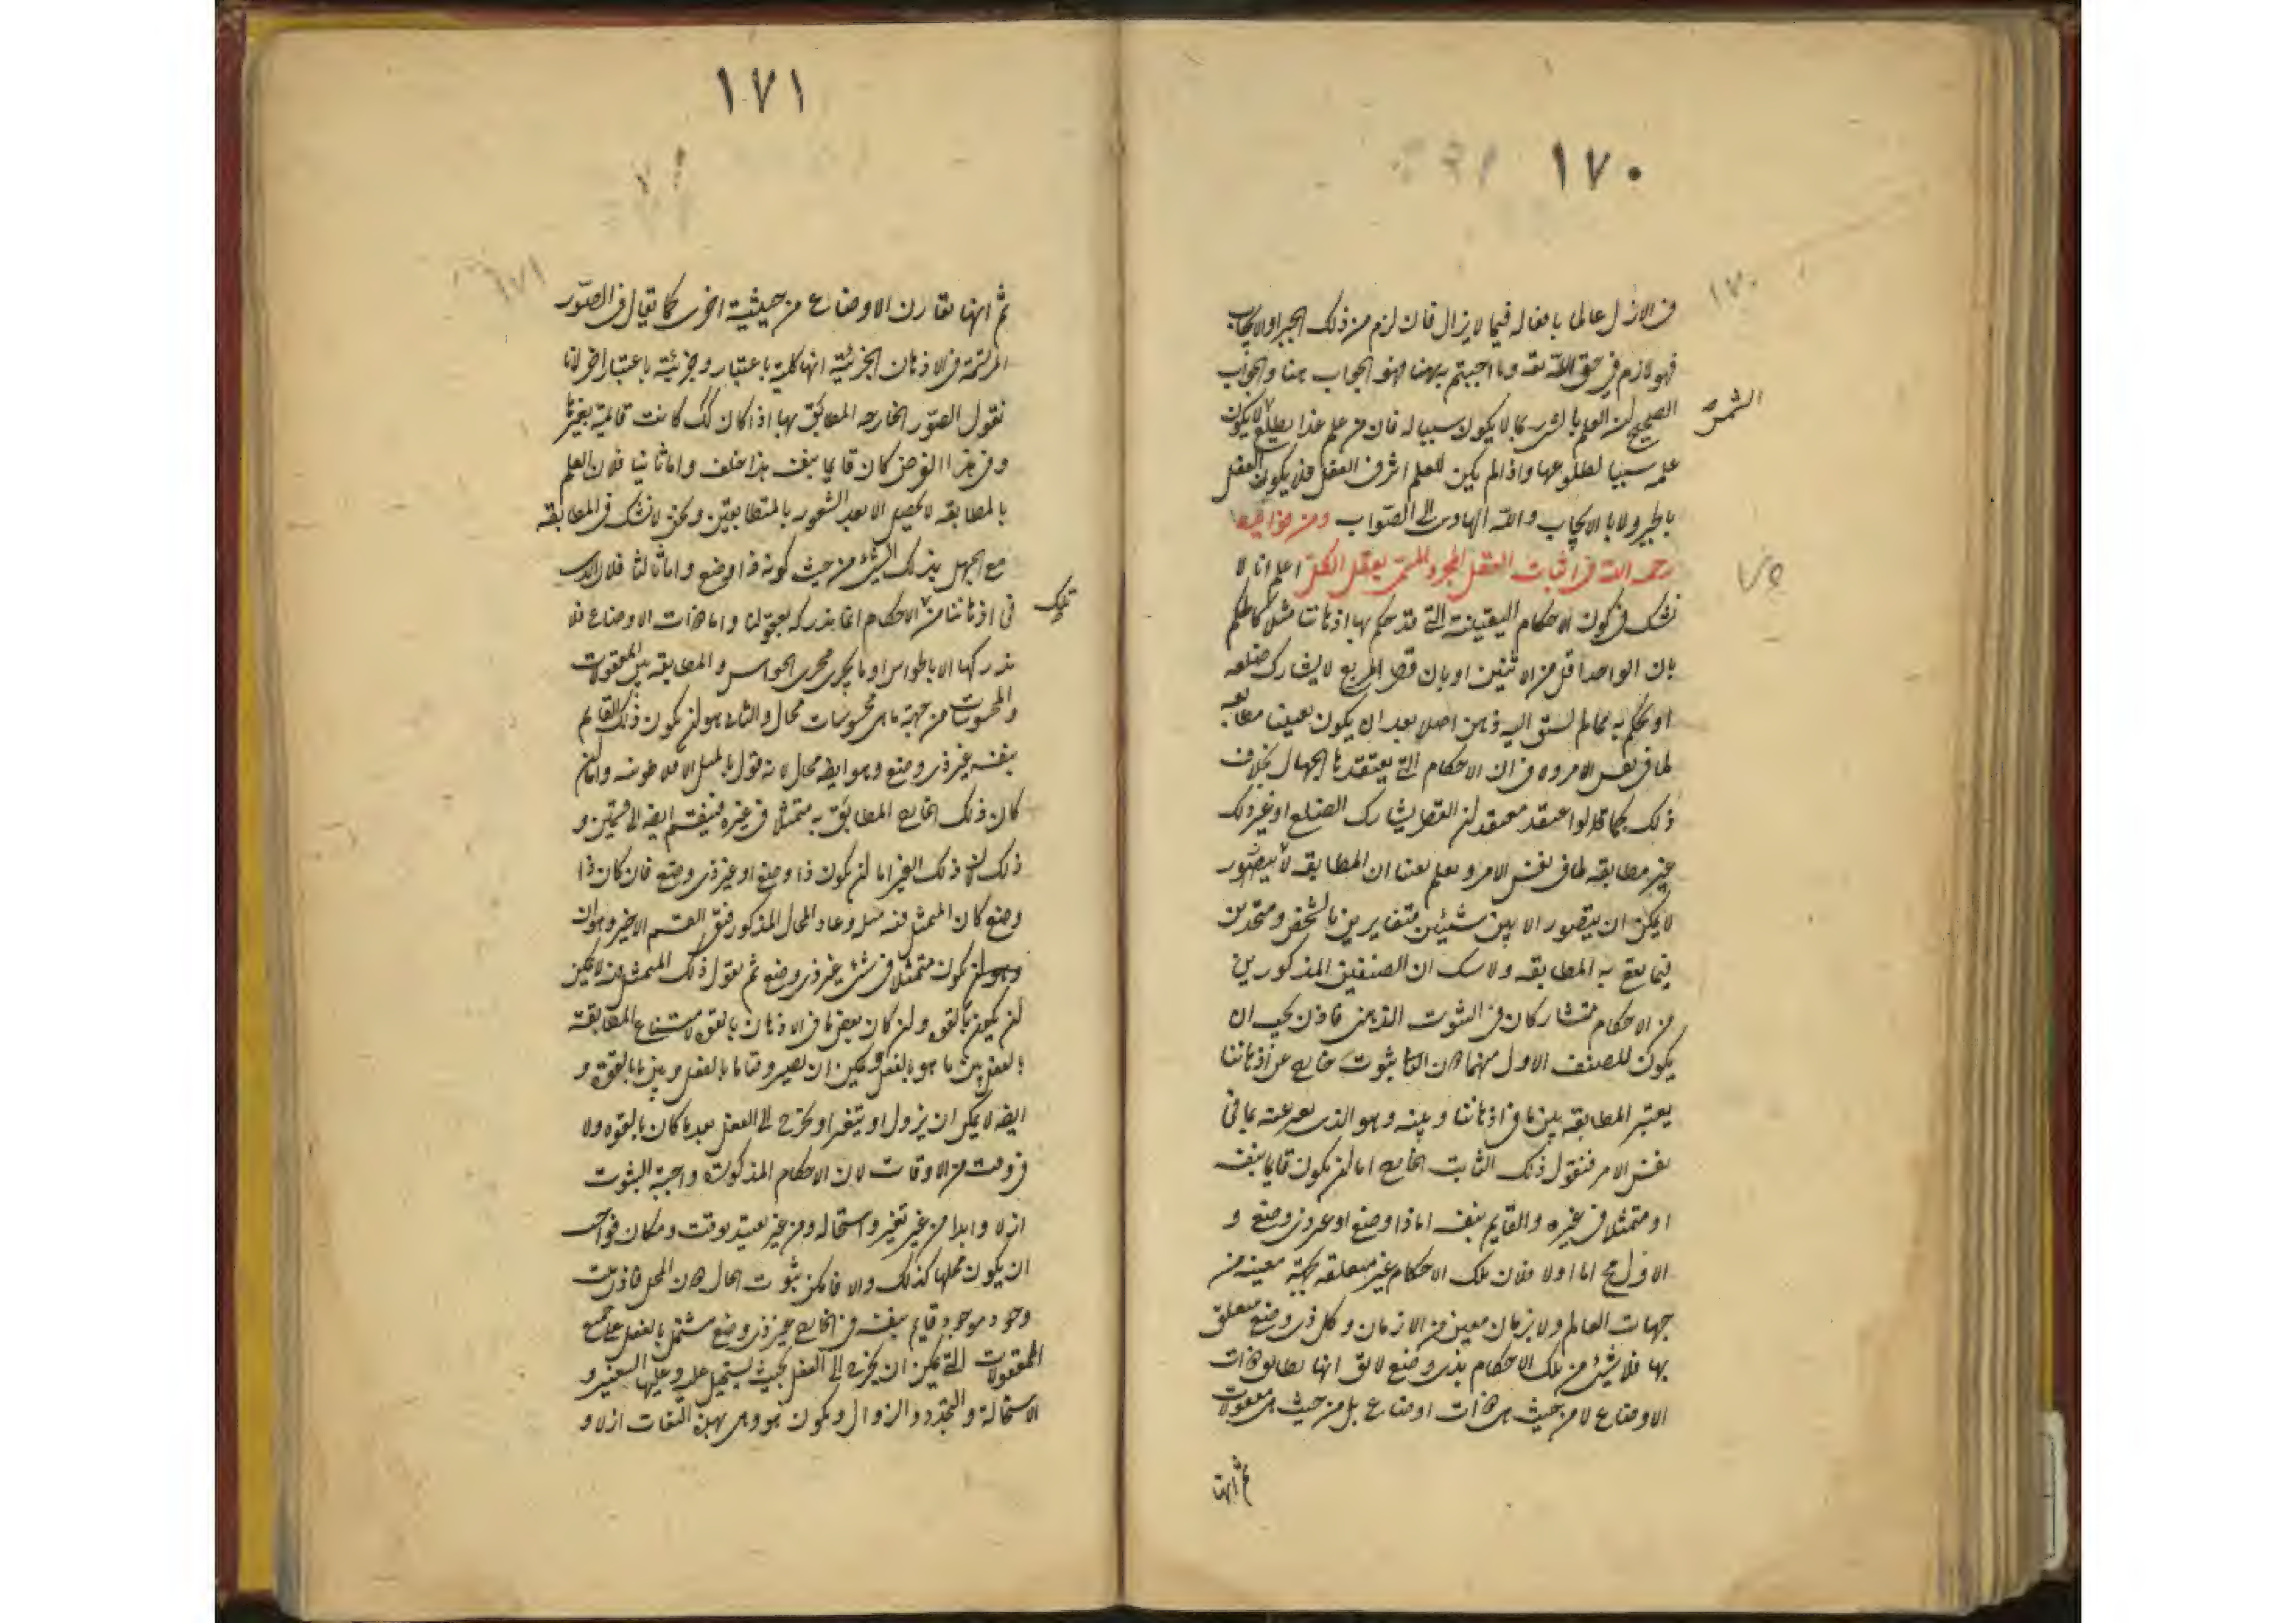 ١٧٠
١٧٠
فى الازل عالما بافعاله فيما لا يزال فان لزم من ذلك الجبر او الايجاب
فهو لازم فى حق الله تعه وما اجبتم به هنا فهو الجواب هنا والجواب
الشمس
الصحيح ان العلم بالشى ربما لا يكون سببا له فان من علم غدا يطلع لا يكون
علمه سببا لطلوعها واذا لم يكن للعلم اثر فى الفعل فلا يكون الفعل
بالجبر ولا بالايجاب والله الهادى الى الصواب ومن فوائده
رحمه الله فى اثبات العقل المجرد المسمى بعقل الكل اعلم انا لا
٧٥
نشك فى كون الاحكام اليقينية التى قد حكم بها اذهاننا مثلا كالحكم
بان الواحد اقل من الاثنين او بان قطر المربع لا يشارك ضلعه
او يحكم به مما لم يسبق اليه ذهن اصلا بعد ان يكون يقينا مطابقه
لما فى نفس الامر و فى ان الاحكام التى يعتقدها الجهال بخلاف
ذلك كما لو اعتقد معتقد ان القطر يشارك الضلع او غير ذلك
غير مطابقه لما فى نفس الامر ونعلم يقينا ان المطابقه لا يتصور
لا يمكن ان يتصور الا بين شيئين متغايرين بالشخص ومتحدين
فيما يقع به المطابقه ولا شك ان الصنفين المذكورين
من الاحكام متشاركان فى الثبوت الذهنى فاذن يجب ان
يكون للصنف الاول منهما دون الثانى ثبوت خارج عن اذهاننا
يعتبر المطابقه بين ما فى اذهاننا وبينه وهو الذى يعبر عنه بما فى
نفس الامر فنقول ذلك الثابت الخارج اما ان يكون قايما بنفسه
او متمثلا فى غيره والقايم بنفسه اما ذا وضع او غير ذى وضع و
الاول مح اما اولا فلان تلك الاحكام غير متعلقه بجهة معينه من
جهات العالم ولا بزمان معين من الازمان وكل ذى وضع متعلق
بها فلا شئ من تلك الاحكام بذى وضع لا يق انها يطابق ذات
الاوضاع لا من حيث هى ذات اوضاع بل من حيث هى معقولات
ثم انها
١٧١
١٧١
ثم انها تقارن الاوضاع من حيثية اخرى كما يقال فى الصّور
المرتسمة فى الاذهان الجزئية انها كلية باعتبار وجزئية باعتبار اخر لانا
نقول الصّور الخارجه المطابق بها اذا كان كك كانت قائمة بغيرها
وفى هذا الفرض كان قايما بنفسه هذا خلف واما ثانيا فلان العلم
بالمطابقه لا يحصل الا بعد الشعور بالمتطابقين ونحن لا نشك فى المطابقه
مع الجهل بذلك الشئ من حيث كونه ذا وضع واما ثالثا فلان الذى
تلك
فى اذهاننا من الاحكام انما ندركه بعقولنا واما ذات الاوضاع فلا
ندركها الا بالحواس او ما يجرى مجرى الحواس والمطابقه بين المعقولات
والمحسوسات من جهة ما هى محسوسات محال والثانى هو ان يكون ذلك القايم
بنفسه غير ذى وضع وهو ايضه محال لانه قول بالمثل الافلاطونيه واما ان
كان ذلك الخارج المطابق به متمثلا فى غيره فينقسم ايضه الى قسمين و
ذلك لان ذلك الغير اما ان يكون ذا وضع او غير ذى وضع فان كان ذا
وضع كان المتمثل فيه مثله وعاد المحال المذكور فبقى القسم الاخير وهو ان
وهو ان يكون متمثلا فى شئ غير ذى وضع ثم نقول ذلك المتمثل فيه لا يمكن
ان يكون بالقوه وان كان بعض ما فى الاذهان بالقوه لامتناع المطابقة
بالفعل بين ما هو بالفعل ويمكن ان يصير وقتا ما بالفعل وبين ما بالقوه و
ايضه لا يمكن ان يزول او يتغير او يخرج الى الفعل بعد ما كان بالقوه ولا
فى وقت من الاوقات لان الاحكام المذكورة واجبة الثبوت
ازلا وابدا من غير تغير واستحاله ومن غير تقييد بوقت ومكان فواجب
ان يكون محلها كذلك والا فامكن ثبوت الحال دون المحل فاذن ثبت
وجود موجود قايم بنفسه فى الخارج غير ذى وضع مشتمل بالفعل على جميع
المعقولات التى يمكن ان يخرج الى الفعل بحيث يستحيل عليه وعليها التغير و
الاستحالة والتجدد والزوال ويكون هو وهى بهذه الصفات ازلا و